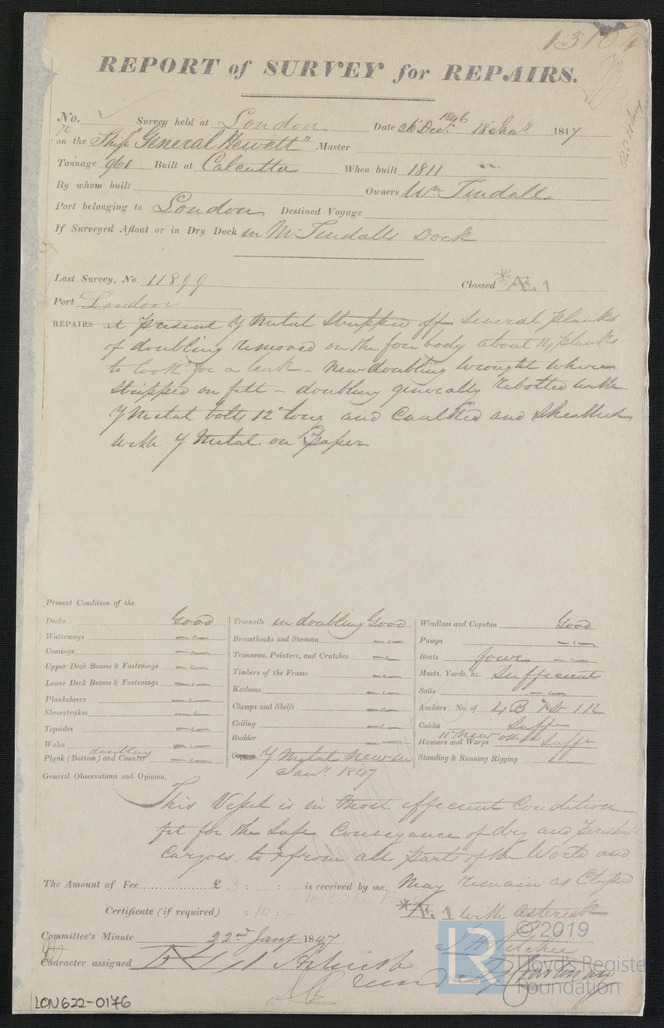 REPORT of SURVEY for REPAIRS.
No. Survey held at London Date 26 Decr. 1846 18 Jany 1847
on the Ship General Hewett Master
Tonnage 961 Built at Calcutta When built 1811
By whom built Owners Wm Tindall
Port belonging to London Destined Voyage
If Surveyed Afloat or in Dry Dock in Mr Tindalls Dock
Last Survey, No. 11899 Classed *Æ. 1
Port London
REPAIRS at present Y Metal Stripped off Several planks
of doubling removed on the fore body about 14 planks
to look for a leak – New doubling wrought where
stripped on felt – doubling generally rebolted with
Y Metal bolts 12 long and Caulked and Sheathed
with Y Metal on Paper
Present Condition of the
Decks Good
Waterways
Comings
Upper Deck Beams & Fastenings
Lower Deck Beams & Fastenings
Planksheers
Sheerstrakes
Topsides
Wales
doubling
Plank (Bottom) and Counter
Treenails in doubling Good
Breasthooks and Stemson
Transoms, Pointers, and Crutches
Timbers of the Frame
Keelsons
Clamps and Shelfs
Ceiling
Rudder
Y Metal New in
Jany 1847
Windlass and Capstan Good
Pumps
Boats four
Masts, Yards, &c. Sufficient
Sails
Anchors No. of 4 B
Cables Suffe
Hawsers and Warps Suffe
Standing & Running Rigging
General Observations and Opinion,
This Vessel is in most efficient Condition
fit for the Safe Conveyance of dry and
Cargoes, to & from all parts of the World and
The Amount of Fee £ 3 : : is received by me, May remain as Classed
Certificate (if required) : 10 : *Æ. 1 with asterisk
Committee's Minute 22nd Jany 1847
Character assigned
LON622-0176
LR
©2019
Lloyd's Register
Foundation